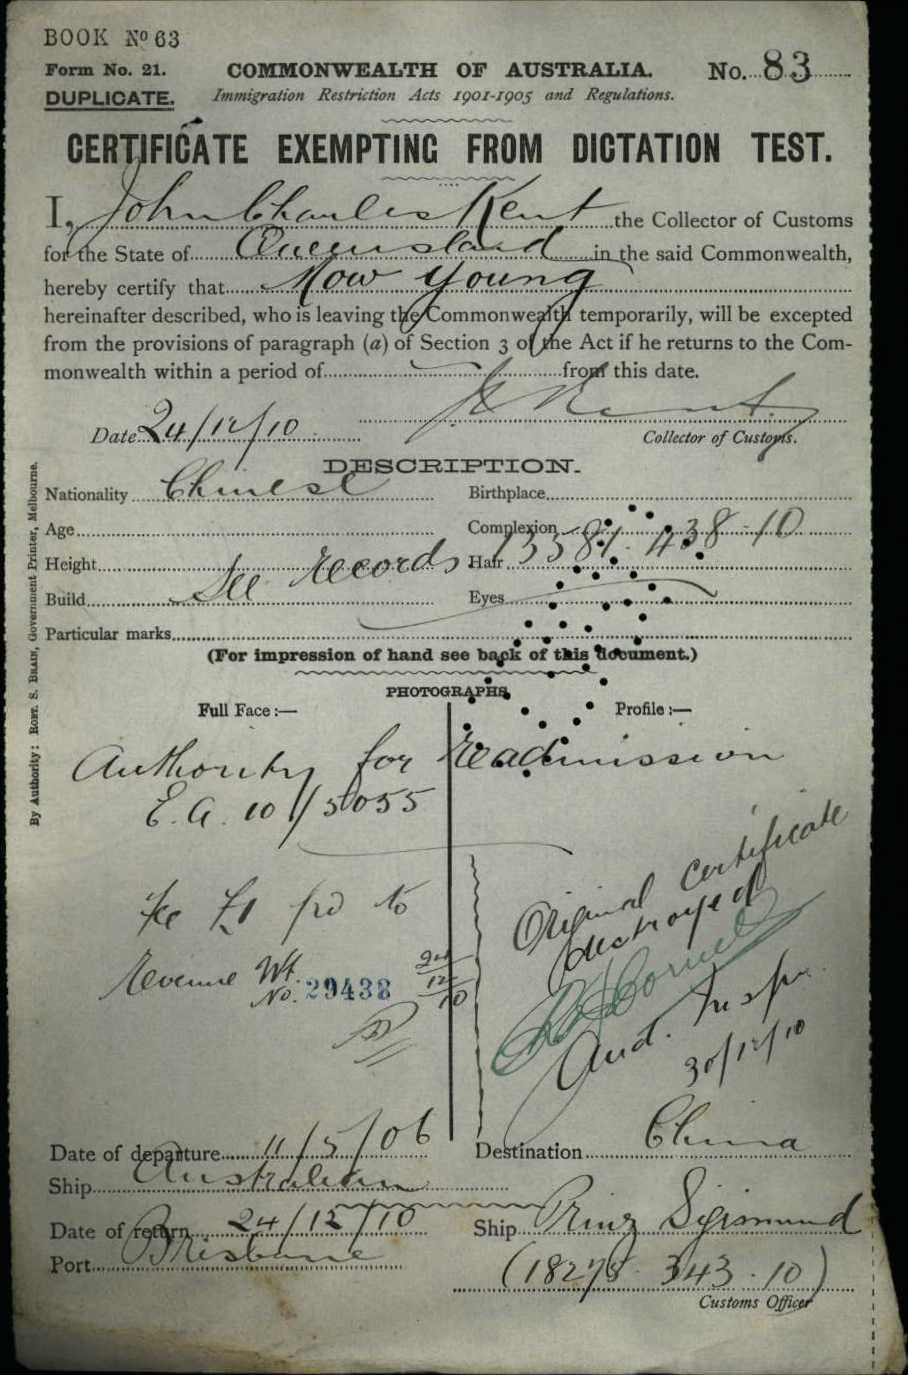 BOOK No 63
Form No. 21. COMMONWEALTH OF AUSTRALIA. No. 83
DUPLICATE. Immigration Restriction Acts 1901-1905 and Regulations.
CERTIFICATE EXEMPTING FROM DICTATION TEST.
I, John Charles Kent the Collector of Customs
for the State of Queensland in the said Commonwealth,
hereby certify that Mow Young
hereinafter described, who is leaving the Commonwealth temporarily, will be excepted
from the provisions of paragraph (a) of Section 3 of the Act if he returns to the Com-
monwealth within a period of from this date.
J C Kent.
Date 24/12/10 Collector of Customs.
DESCRIPTION.
Nationality Chinese Birthplace
Age Complexion
13381. 438-10
Height See records. Hair
Build Eyes
Particular marks
(For impression of hand see back of this document.)
PHOTOGRAPHS
Full Face:— Profile:—
Authority for readmission
E.A. 10/5055
Fee £1 pd to
Revenue Wt. No. 29438 24/12/10
Original certificate
destroyed
Aud. Inspr.
30/12/10
Date of departure 11/5/06 Destination China
Ship Australian
Date of return 24/12/10 Ship Prinz Sigismund
Port Brisbane (18278. 343.10)
Customs Officer
By Authority: ROBT. S. BRAIN, Government Printer, Melbourne.